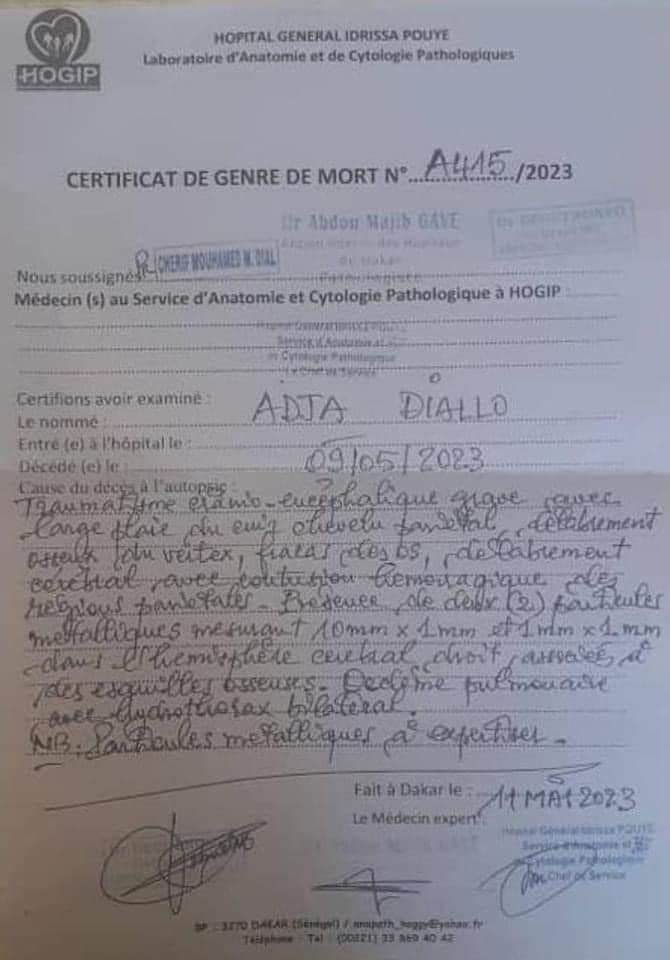 HOGIP
HOPITAL GENERAL IDRISSA POUYE
Laboratoire d'Anatomie et de Cytologie Pathologiques
CERTIFICAT DE GENRE DE MORT N°...A415.../2023
Dr Abdou Majib GAYE
Ancien Interne des Hôpitaux
de Dakar
Pathologiste
Nous soussignés CHERIF MOUHAMED M. DIAL
Médecin (s) au Service d'Anatomie et Cytologie Pathologique à HOGIP :
Hôpital Général IDRISSA POUYE
Service d'Anatomie et
de Cytologie Pathologique
Le Chef de Service
Certifions avoir examiné :
Le nommé : ADJA DIALLO
Entré (e) à l'hôpital le :
Décédé (e) le : 09/05/2023
Cause du décès à l'autopsie :
Traumatisme crânio-encéphalique grave avec
large plaie du cuir chevelu pariétal, délabrement
osseux du vertex, fracas des os, délabrement
cérébral avec contusion hémorragique des
régions pariétales. Présence de deux (2) particules
métalliques mesurant 10mm x 1mm et 1mm x 1mm
dans l'hémisphère cérébral droit, associées à
des esquilles osseuses. Oedème pulmonaire
avec hydrothorax bilatéral.
NB: Particules métalliques à expertiser.
Fait à Dakar le : 11 MAI 2023
Le Médecin expert :
Hôpital Général Idrissa POUYE
Service d'Anatomie et
de Cytologie Pathologique
Chef de Service
BP : 3270 DAKAR (Sénégal) / anapath_hoggy@yahoo.fr
Téléphone - Tel : (00221) 33 869 40 42